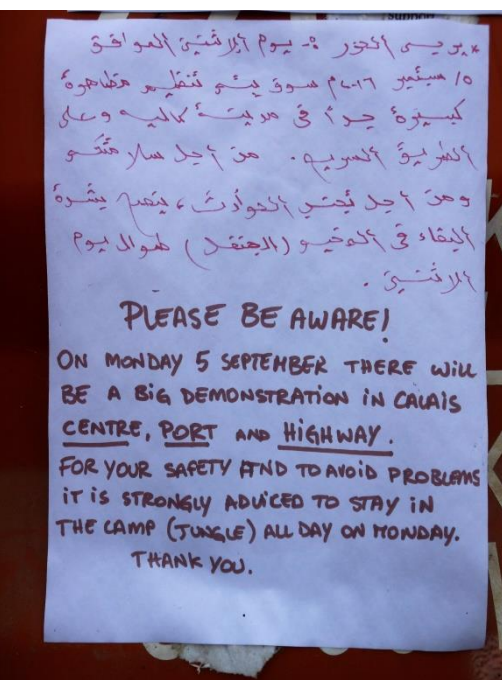 يوم الاثنين الموافق
٥/ سبتمبر ٢٠١٦م سوف يتم تنظيم مظاهرة
كبيرة جداً في مدينة كاليه وعلى
الطريق السريع. من أجل سلامتكم
ومن أجل تجنب الحوادث، ينصح بشدة
البقاء في المخيم (الجنقل) طوال يوم
الاثنين.
PLEASE BE AWARE!
ON MONDAY 5 SEPTEMBER THERE WILL
BE A BIG DEMONSTRATION IN CALAIS
CENTRE, PORT AND HIGHWAY.
FOR YOUR SAFETY AND TO AVOID PROBLEMS
IT IS STRONGLY ADVICED TO STAY IN
THE CAMP (JUNGLE) ALL DAY ON MONDAY.
THANK YOU.